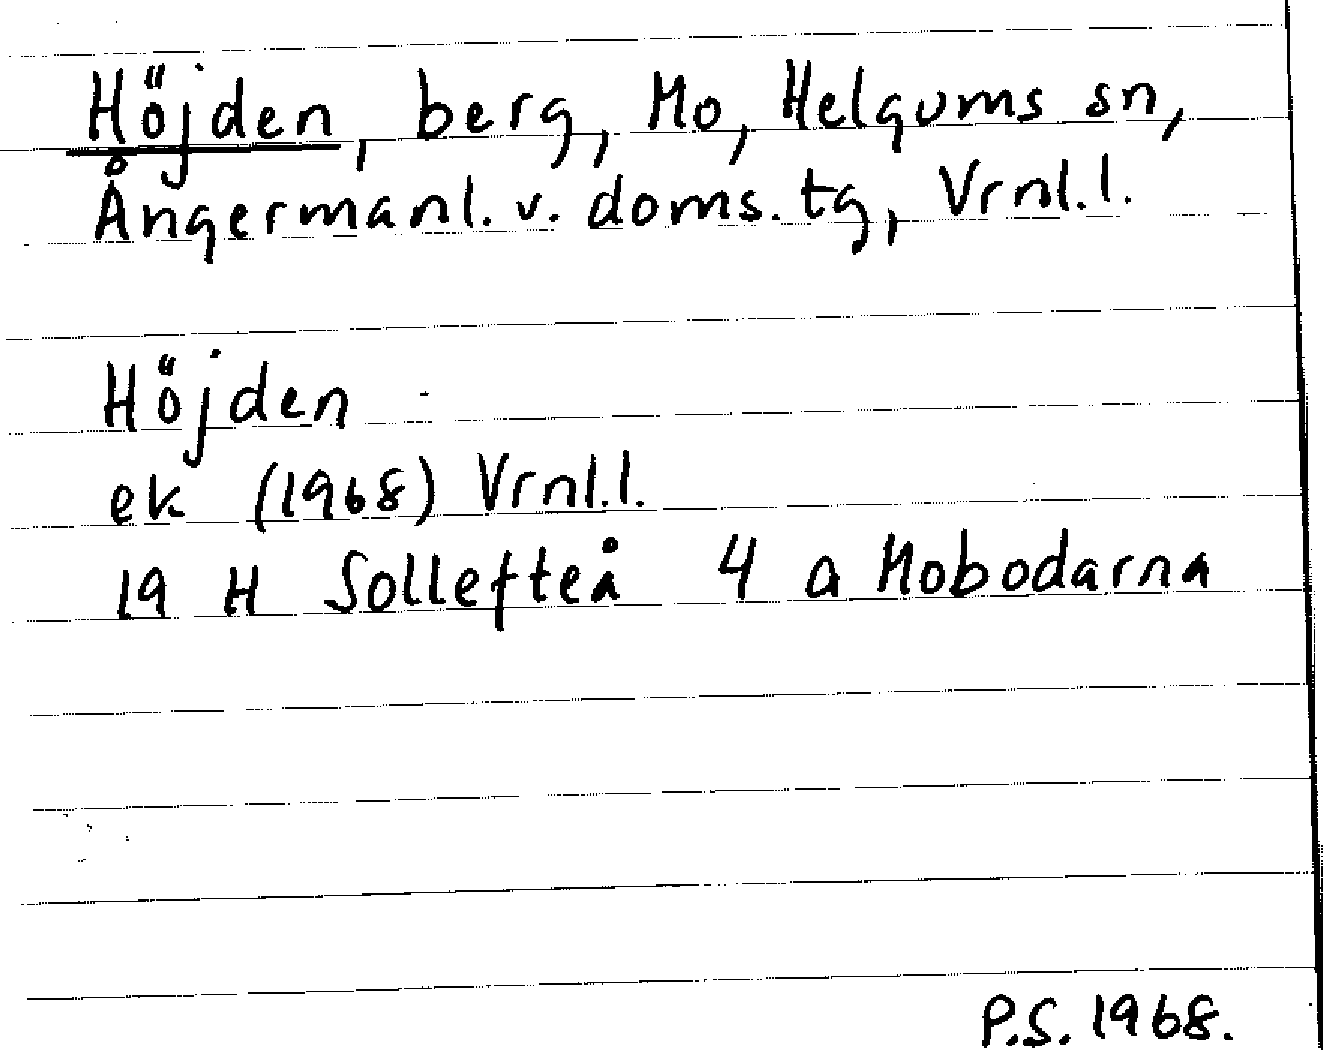 Höjden, berg, Mo, Helgums sn,
Ångermanl. v. doms. tg, Vrnl.l.
Höjden
ek (1968) Vrnl.l.
19 H Sollefteå 4 a Mobodarna
P.S. 1968.